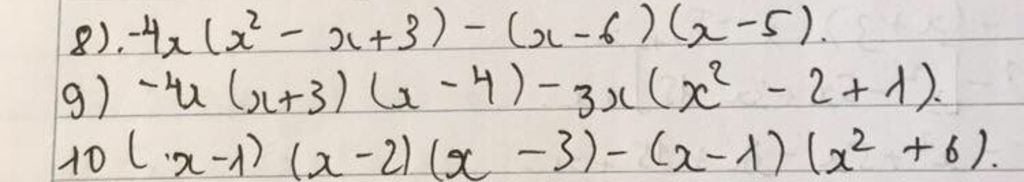 8). -4x (x² - x+3) - (x-6) (x-5).
9) -4x (x+3) (x - 4) - 3x (x² - 2 + 1).
10 (x-1) (x-2) (x - 3) - (x-1) (x² + 6).